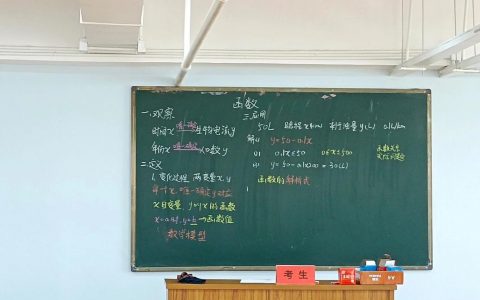 函数
一、观察
时间x 唯一确定 生物电流y
年份x 唯一确定 人口数y
二、定义
1、变化过程，两变量x, y
每个x, 唯一确定y对应
x自变量, y叫x的函数
x=a时, y=b → 函数值
数学模型
三、应用
50L 路程x km 剩油量y(L) 0.1L/km
解(1) y=50-0.1x
(2) 0.1x≤50 0≤x≤500
(3) y=50-0.1×200=30(L)
函数的解析式
考生